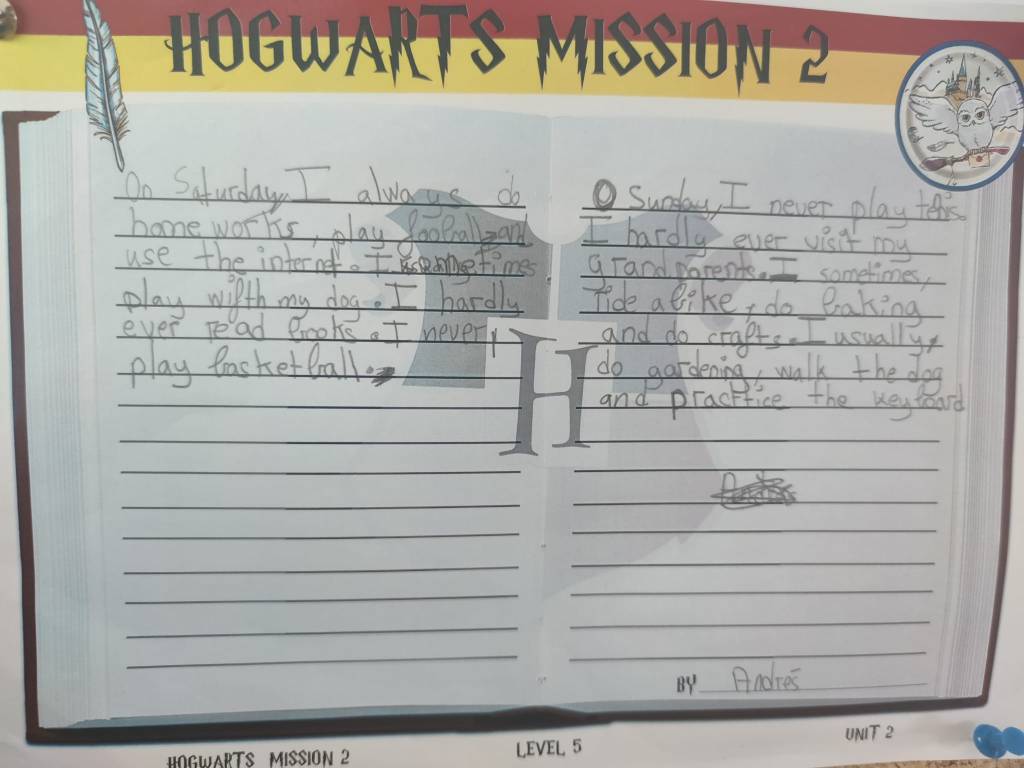 HOGWARTS MISSION 2
On Saturday, I always do
homeworks, play foolball and
use the internet. I sometimes
play wifth my dog. I hardly
ever read books. I never,
play basketball.
O Sunday, I never play tenis.
I hardly ever visit my
grandparents. I sometimes,
ride a bike, do baking
and do crafts. I usually,
do gardening, walk the dog
and practice the keyboard
H
BY Andrés
HOGWARTS MISSION 2
LEVEL 5
UNIT 2